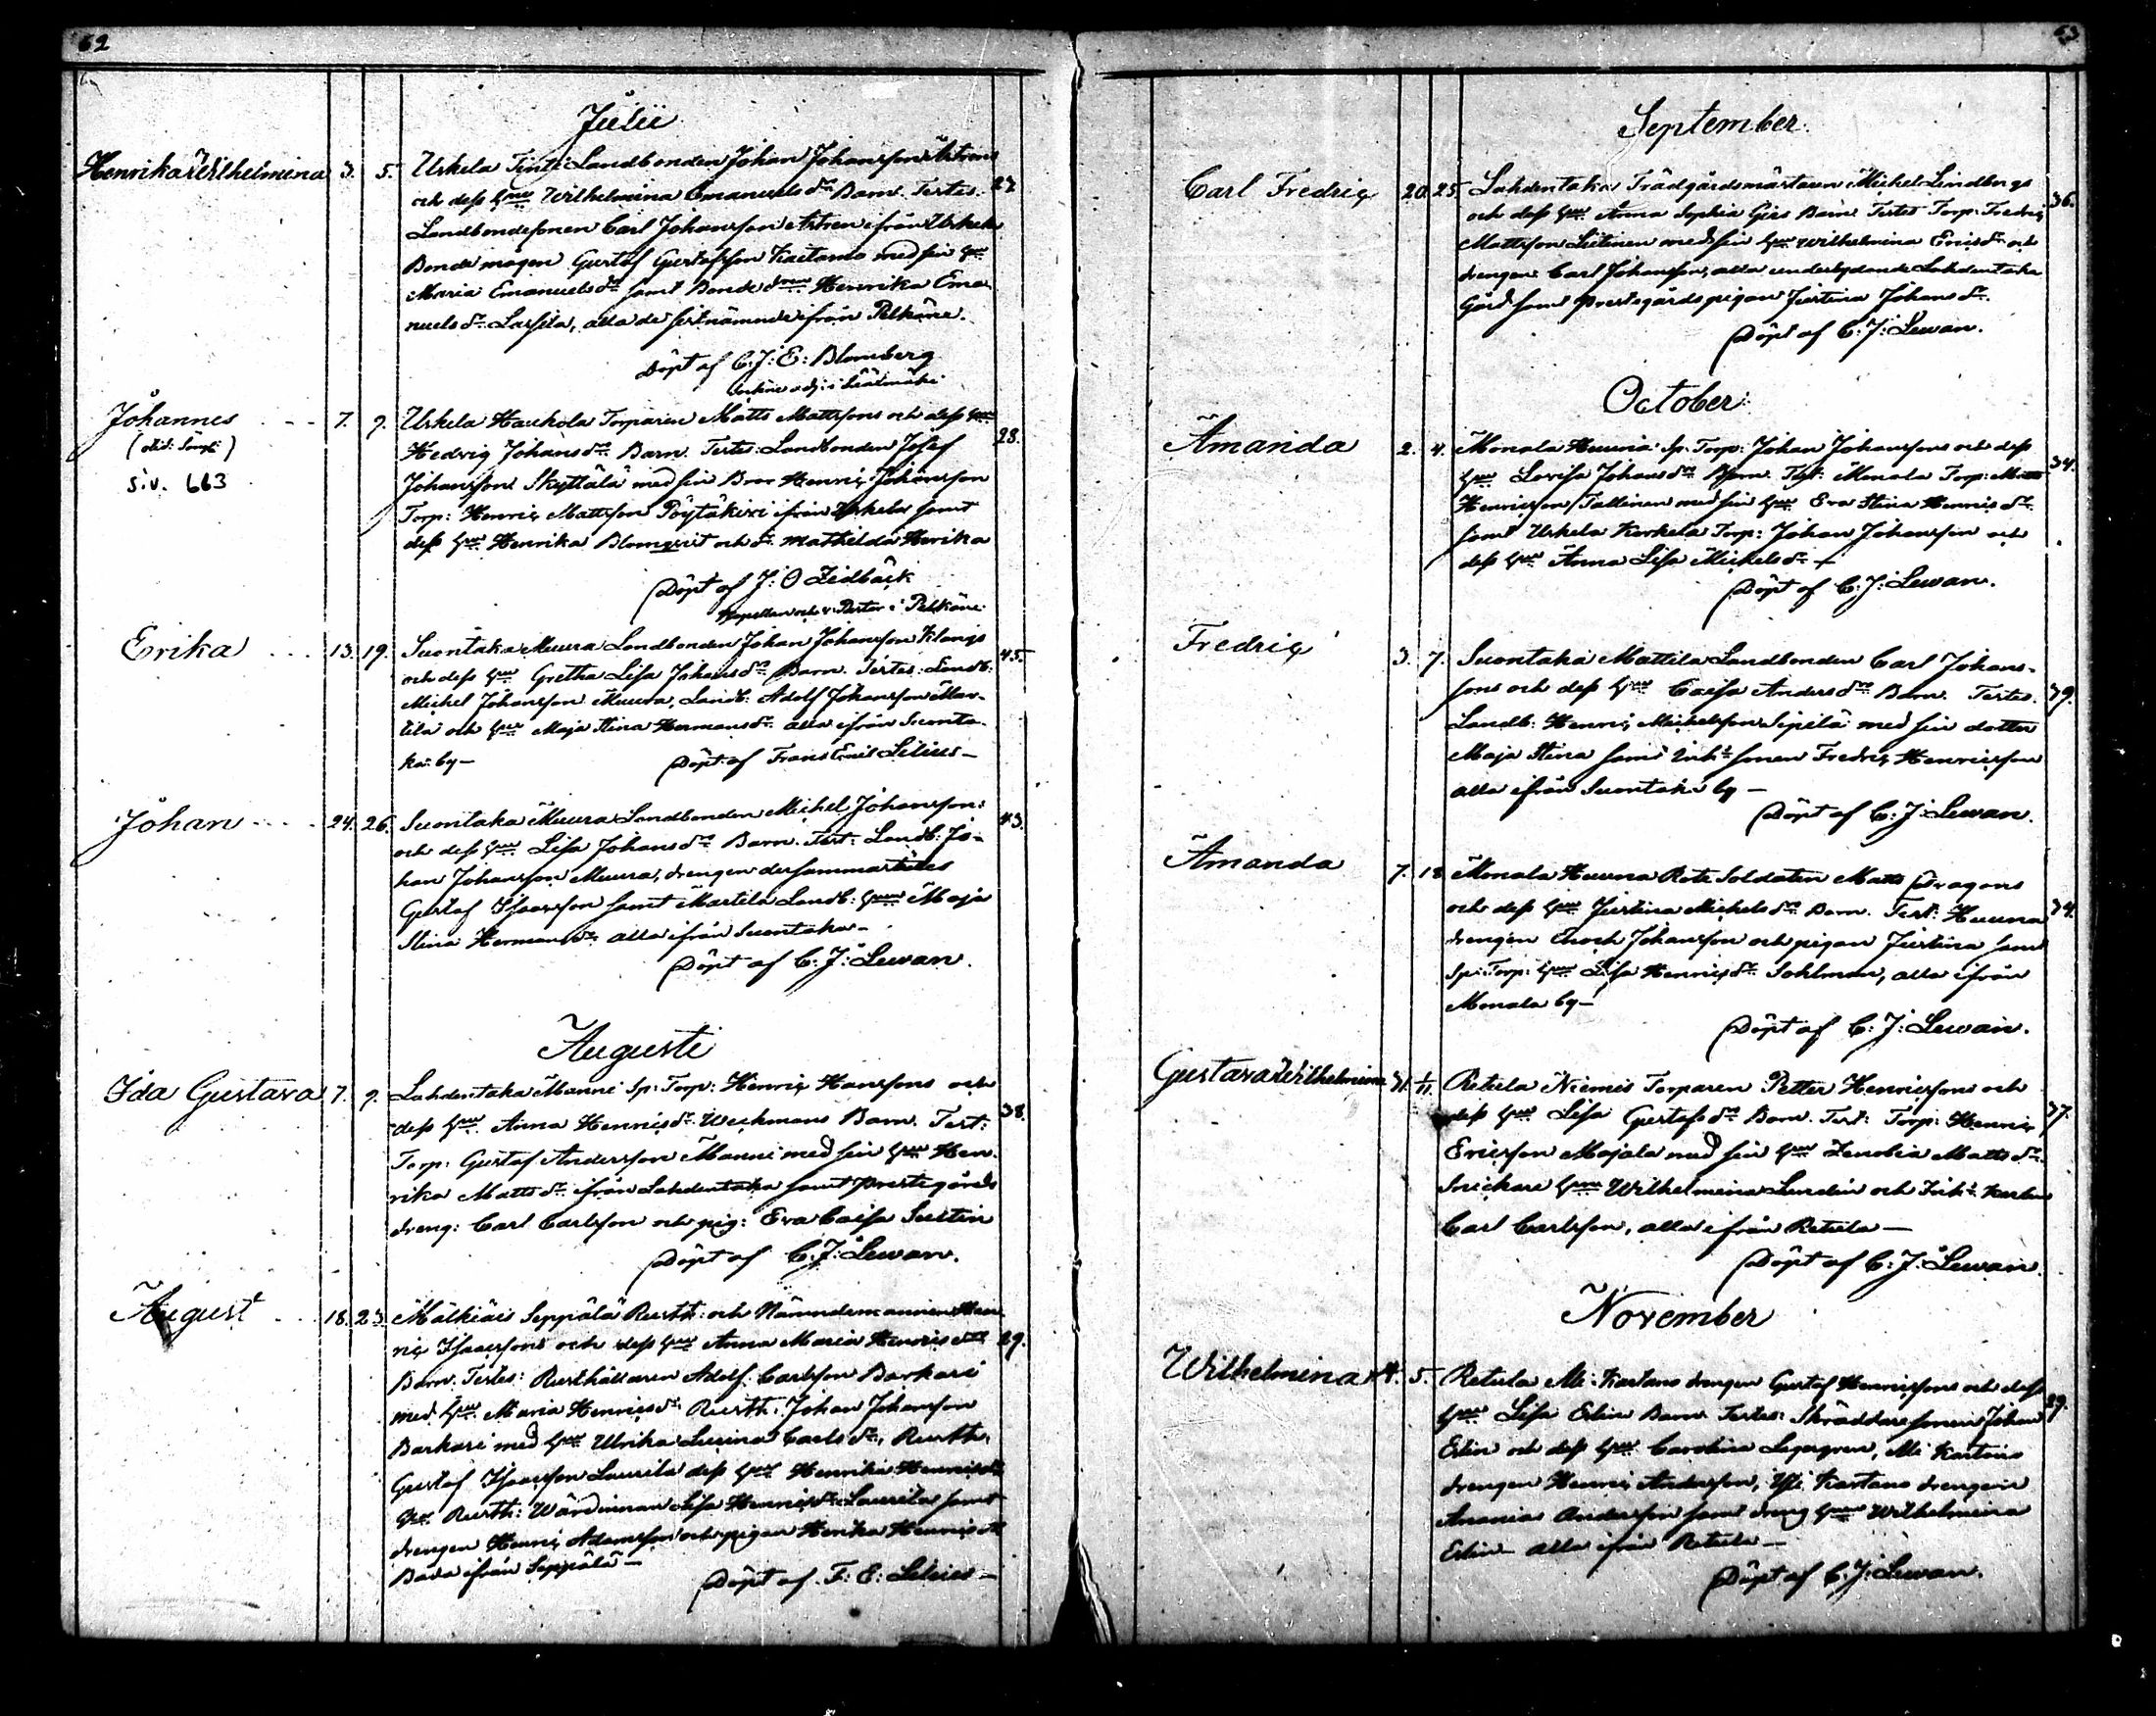 62
Julii
Henrika Wilhelmina 3. 5. Urkela Landbonden Johan Johansson
och dess hu Wilhelmina Emanuels dr Barn. Testes. 27
Landbondesonen Carl Johansson ifrån Urkela
Bonde mågen Gustaf Gustafsson med sin hu
Maria Emanuels dr samt Bonde Henrika Ema-
nuels dr Lassila, alla de sistnämnde ifrån Pelkäne.
Döpt af C. J: E: Blomberg
Johannes 7. 9. Urkela Haukola Torparen Matts Mattssons och dess hu
Hedvig Johans dr Barn. Testes: Landbonden Josef 28.
siv. 663
Johansson Skyttälä med sin Bror Henric Johansson
Torp: Henric Mattsson ifrån Urkela samt
dess hu Henrika Blomqvist och dr Mathilda Herika
Döpt af J: O Zidbäck
Kapellan och v: Pastor i Pelkäne.
Erika 13. 19. Suontaka Muura Landbonden Johan Johansson
och dess hu Gretha Lisa Johans dr Barn. Testes: Landb: 45.
Michel Johansson Muura, Landb: Adolf Johansson Mar-
tila och hu Maja Stina Hermans dr alla ifrån Suonta-
ka by — Döpt af Frans Emil Lilius —
Johan 24. 26. Suontaka Muura Landbonden Michel Johansson:
och dess hu Lisa Johans dr Barn. Test: Landb: Jo- 43.
han Johansson Muura, drengen dersammastädes
Gustaf Isaacsson samt Martila Landb: hu Maja
Stina Hermans dr alla ifrån Suontaka —
Döpt af C: J: Lewan.
Augusti
Ida Gustava 7. 9. Lahdentaka Manni Sp: Torp: Henric Hanssons och
dess hu Anna Henrics dr Weckmans Barn. Test: 38.
Torp: Gustaf Andersson Manni med sin hu Hen-
rika Matts dr ifrån Lahdentaka samt prestegårds
dreng: Carl Carlsson och pig: Eva Caisa
Döpt af C: J: Lewan.
August 18. 23. Mälkiäis Seppälä Rusth: och Nämndemannen Hen-
ric Isaacssons och dess hu Anna Maria Henrics dr 29.
Barn. Testes: Rusthållaren Adolf Carlsson Barkari
med hu Maria Henrics dr, Rusth: Johan Johansson
Barkari med hu Ulrika Lucina Carls dr, Rusth:
Gustaf Isaacsson Laurila dess hu Henrika Henrics dr
Rusth: Wärdinnan Lisa Henrics dr Laurila samt
drengen Henric Adamsson och pigan Henrika Henrics dr
Båda ifrån Seppälä —
Döpt af F: E: Lilius —
63
September.
Carl Fredric 20. 25. Lahdentaka Trädgårdsmästaren Michel Lindbergs
och dess hu Anna Sophia Barn. Testes Torp: Fredric 36.
Mattsson med sin hu Wilhelmina Erics dr och
drengen Carl Johansson, alla underlydande Lahdentaka
Gård samt prestgårdspigan Justina Johans dr.
Döpt af C: J: Lewan.
October.
Amanda 2. 4. Monala Huuna Sp: Torp: Johan Johanssons och dess
hu Lovisa Johans dr Barn. Test: Monala Torp: Matts 34.
Henricsson Tallinen med sin hu Eva Stina Henrics dr
samt Urkela Korkela Torp: Johan Johansson och
dess hu Anna Lisa Michels dr —
Döpt af C: J: Lewan.
Fredric 3. 7. Suontaka Mattila Landbonden Carl Johans-
sons och dess hu Caisa Anders dr Barn. Testes. 39.
Landb: Henric Michelsson Sipilä med sin dotter
Maja Stina samt Inh: sonen Fredric Henricsson
alla ifrån Suontaka by —
Döpt af C: J: Lewan.
Amanda 7. 18 Monala Huuna Rote Soldaten Matts Dragons
och dess hu Justina Michels dr Barn. Test: Huuna 34.
drengen Enoch Johansson och pigan Justina samt
Sp: Torp: hu Lisa Henrics dr Sohlman, alla ifrån
Monala by —
Döpt af C: J: Lewan.
Gustava Wilhelmina 31. 1/11 Retula Niemis Torparen Petter Henricssons och
dess hu Lisa Gustafs dr Barn. Test: Torp: Henric 37.
Ericsson Majala med sin hu Zenobia Matts dr
Snickare hu Wilhelmina Lundin och Inh:
Carl Carlsson, alla ifrån Retula —
Döpt af C: J: Lewan.
November
Wilhelmina 4. 5. Retula Ali-Kartano drengen Gustaf Henricssons och dess
hu Lisa Edin Barn Testes: Skräddare sonen Johan 29.
Edin och dess hu Carolina Legergren, Ali Kartano
drengen Henric Andersson, Yli Kartano drengen
Ananias Andersson samt dreng hu Wilhelmina
Edin — alla ifrån Retula —
Döpt af C: J: Lewan.